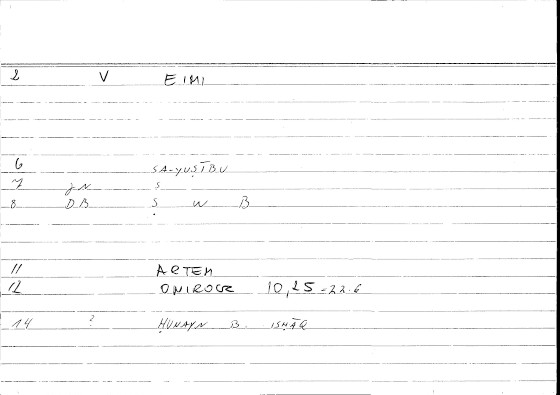 2 V EIMI
6 SA-YUṢĪBU
7 JN S
8 DB Ṣ W B
11 ARTEM
12 ONIROCR 10,25-22.6
14 ? ḤUNAYN B. ISḤĀQ